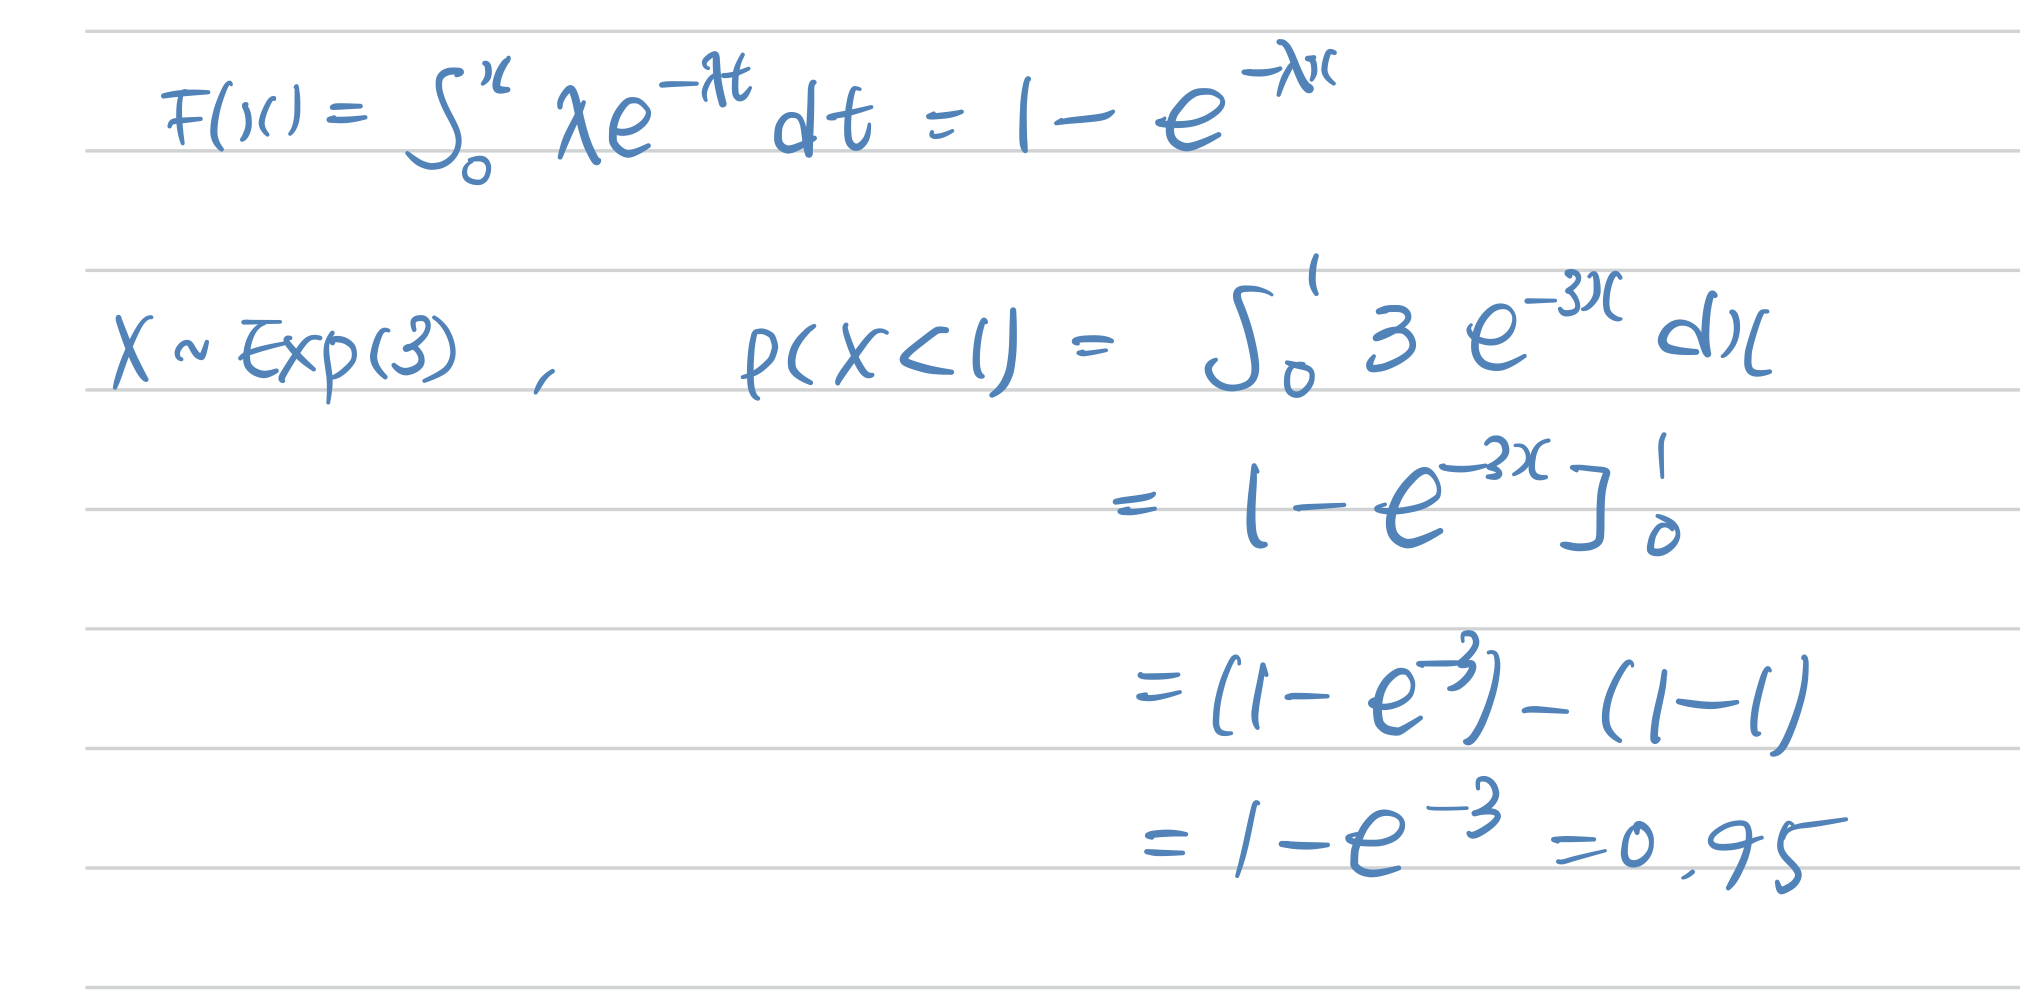 F(x) = ∫₀ˣ λe^{-λt} dt = 1 - e^{-λx}
X ~ Exp(3) , p(X<1) = ∫₀¹ 3 e^{-3x} dx
= 1 - e^{-3x} ]₀¹
= (1 - e^{-3}) - (1-1)
= 1 - e^{-3} = 0.95